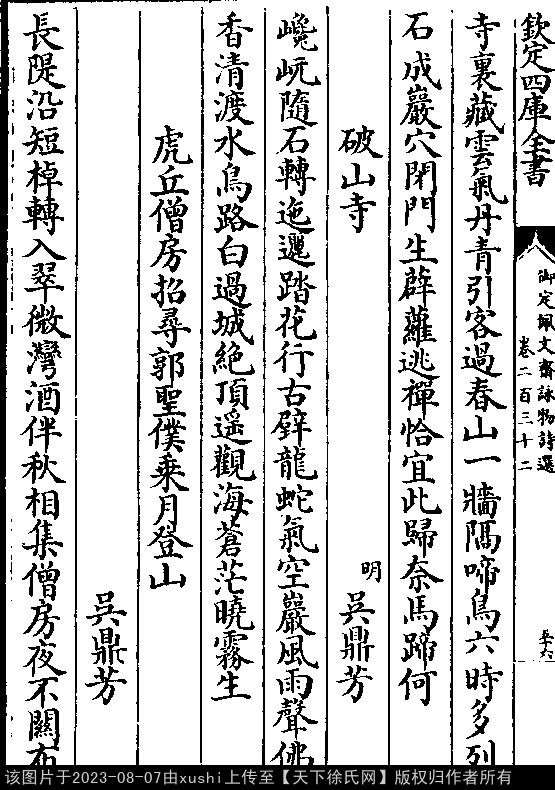 欽定四庫全書
御定佩文齋詠物詩選
卷二百三十二
寺裏藏雲氣丹青引客過春山一牆隅啼鳥六時多列
石成巖穴閉門生薜蘿逃禪恰宜此歸奈馬蹄何
破山寺
明
吳鼎芳
巉岏隨石轉迤邐踏花行古壁龍蛇氣空巖風雨聲佛
香清渡水鳥路白過城絶頂遥觀海蒼茫曉霧生
虎丘僧房招尋郭聖僕乘月登山
吳鼎芳
長隄沿短棹轉入翠微灣酒伴秋相集僧房夜不關布
该图片于2023-08-07由xushi上传至【天下徐氏网】版权归作者所有